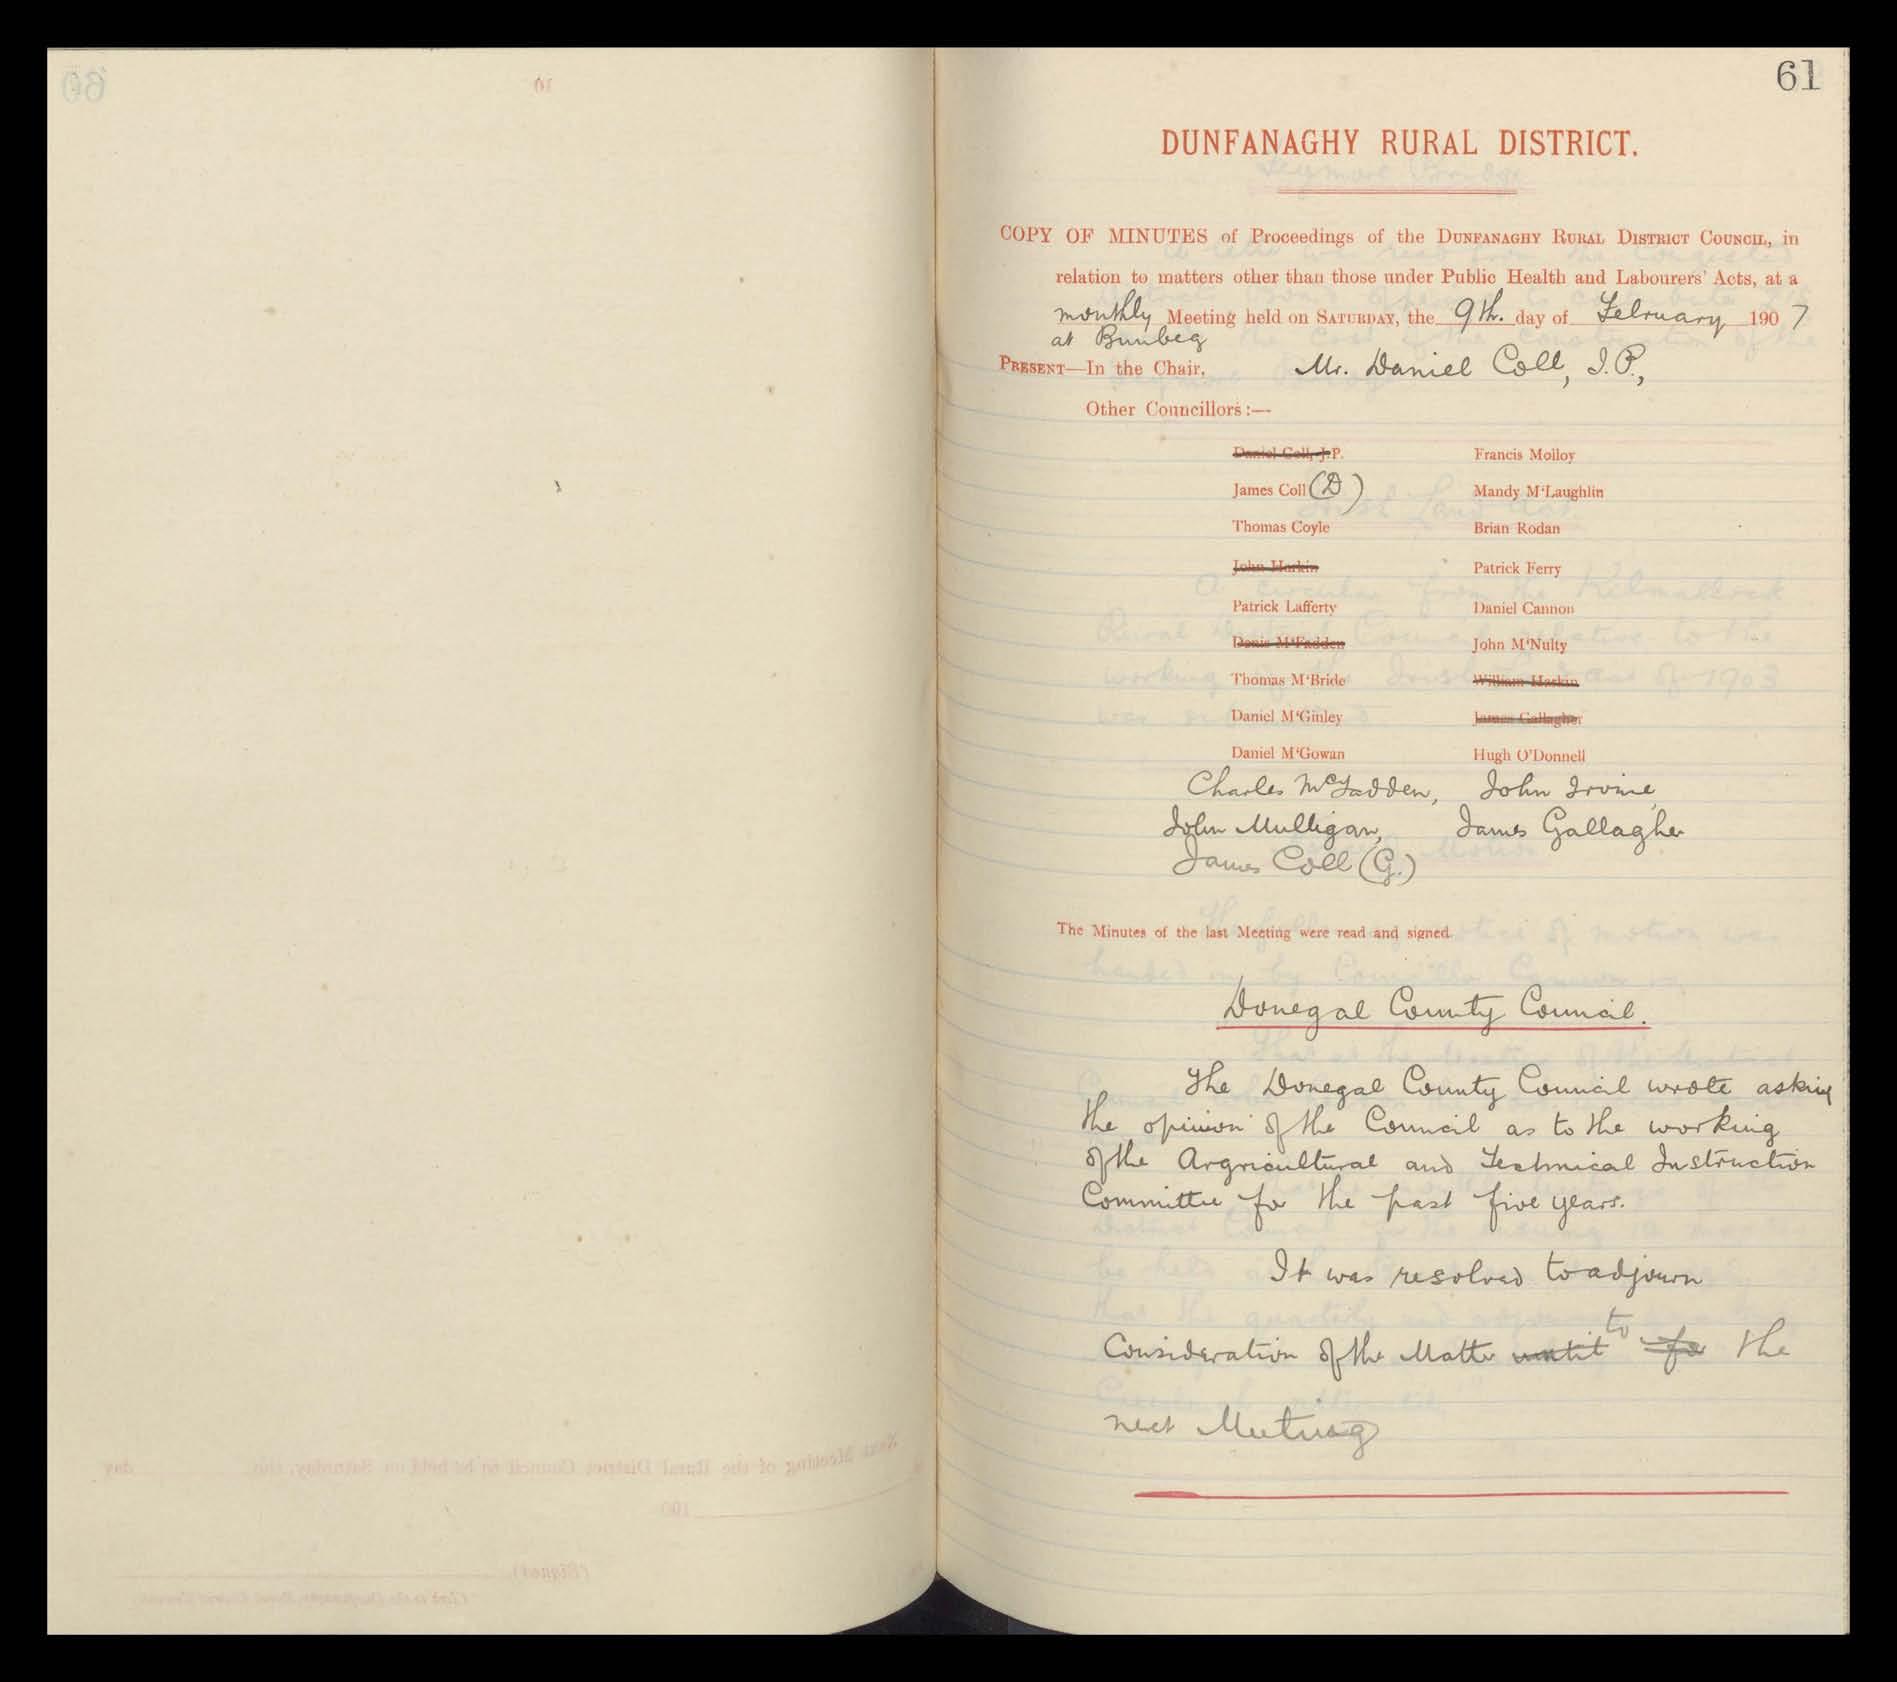 61
DUNFANAGHY RURAL DISTRICT.
COPY OF MINUTES of Proceedings of the DUNFANAGHY RURAL DISTRICT COUNCIL, in
relation to matters other than those under Public Health and Labourers' Acts, at a
monthly Meeting held on SATURDAY, the 9th. day of February 1907
at Bunbeg
PRESENT—In the Chair, Mr. Daniel Coll, J.P.,
Other Councillors:—
Daniel Coll, J.P. Francis Molloy
James Coll (D) Mandy M'Laughlin
Thomas Coyle Brian Rodan
John Harkin Patrick Ferry
Patrick Lafferty Daniel Cannon
Denis M'Fadden John M'Nulty
Thomas M'Bride William Harkin
Daniel M'Ginley James Gallagher
Daniel M'Gowan Hugh O'Donnell
Charles McFadden, John Irvine,
John Mulligan, James Gallagher
James Coll (G.)
The Minutes of the last Meeting were read and signed.
Donegal County Council.
The Donegal County Council wrote asking
the opinion of the Council as to the working
of the Argricultural and Technical Instruction
Committee for the past five years.
It was resolved to adjourn
Consideration of the Matter until to for the
next Meeting